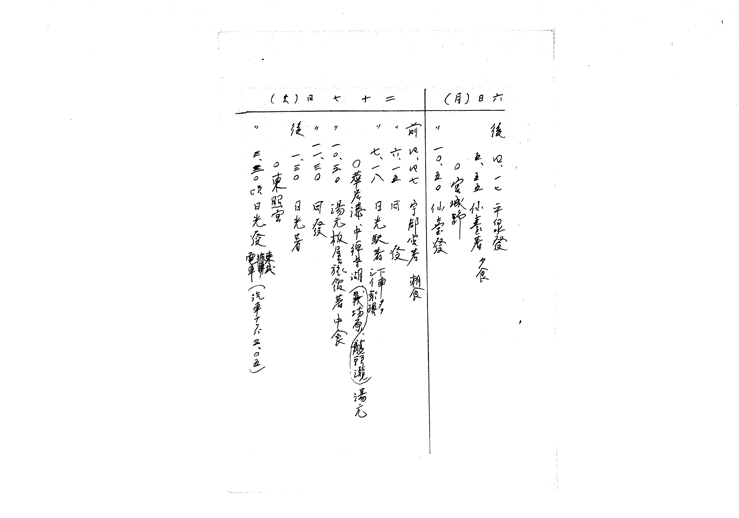 六日(月)
後 四、一七 平泉發
五、五五 仙臺着 夕食
○宮城野
〃 一〇、五〇 仙臺發
二十七日(火)
前 四、四七 宇都宮着 朝食
〃 六、一五 同 發
〃 七、一八 日光駅着
○華厳瀑、中禅寺湖(戦場原、龍頭瀧)湯元
〃 一〇、三〇 湯元板屋旅館着 中食
〃 一一、三〇 同發
後 一、三〇 日光着
○東照宮
〃 三、三〇 日光發 東武電車(汽車ナラバ三、〇五)